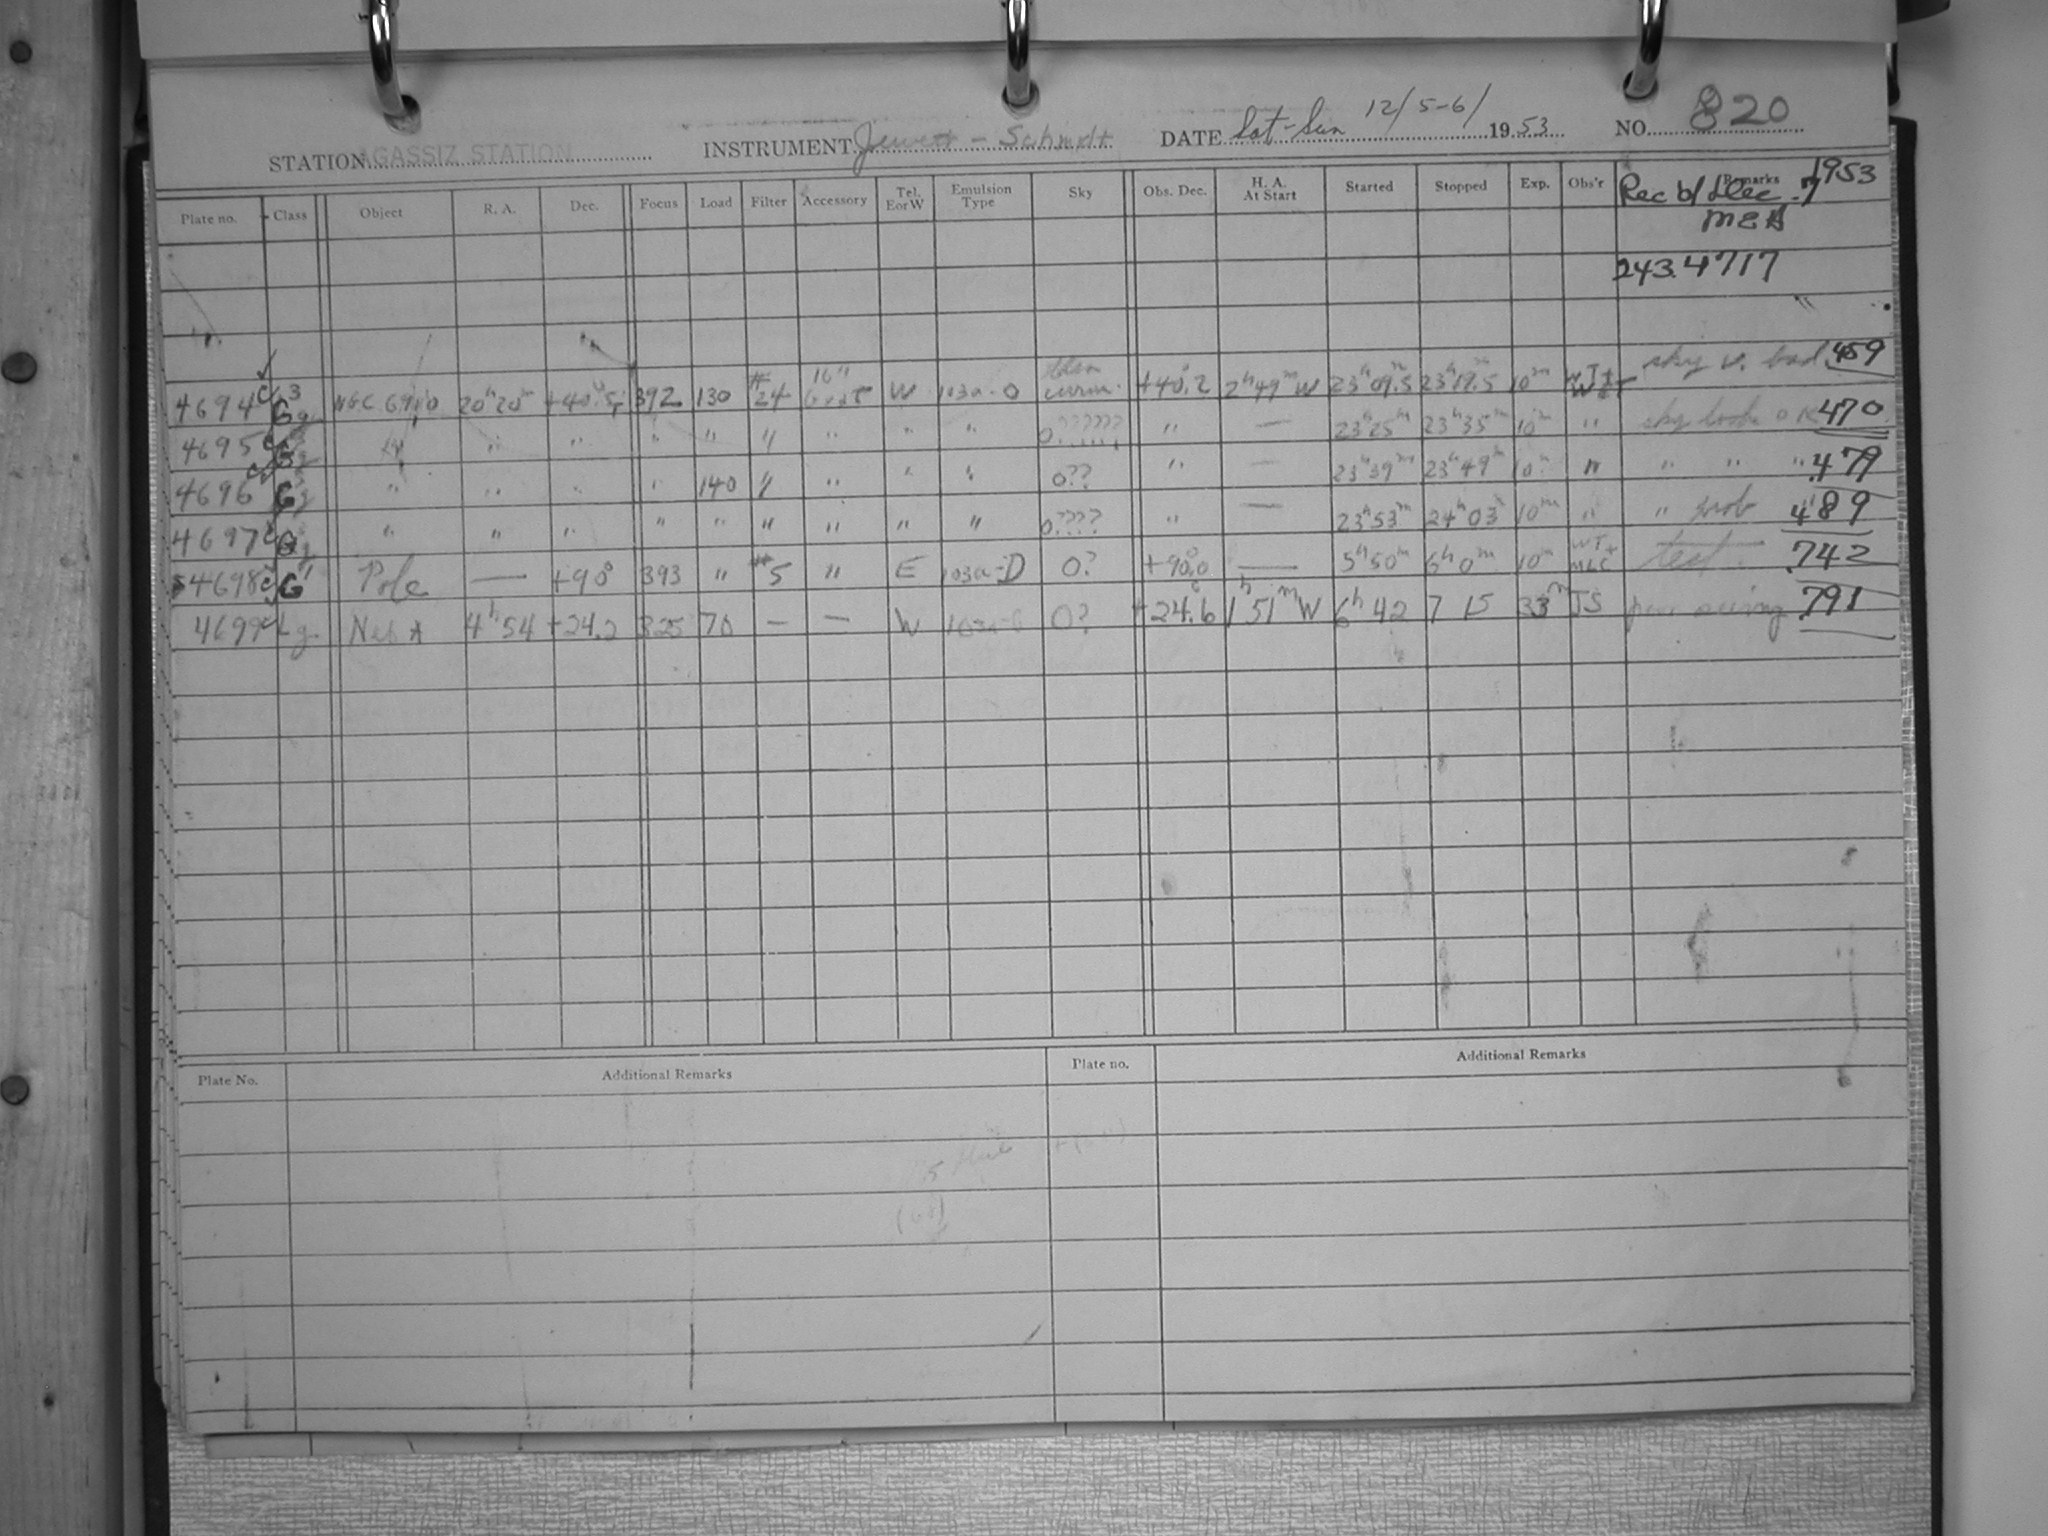 STATION AGASSIZ STATION INSTRUMENT Jewett - Schmidt DATE Sat-Sun 12/5-6/ 1953 NO. 820
Plate no. Class Object R. A. Dec. Focus Load Filter Accessory Tel. E or W Emulsion Type Sky Obs. Dec. H. A. At Start Started Stopped Exp. Obs'r Remarks
Rec'd Dec. 7 1953
243.4717
4694 G NGC 20h20m 392 130 #24 16" W 103a-O +40.2 2h49mW 23h09.5m 23h19.5m 10m sky v. bad .459
4695 " " " " " " " " " " 0?????? " — 23h25m 23h35m 10m " sky looks OK .470
4696 G " " " " 140 " " " " 0?? " — 23h39m 23h49m 10m " " " " .479
4697 G " " " " " " " " " 0???? " — 23h53m 24h03m 10m " " prob .489
4698 G Pole — +90° 393 " #5 " E 103a-D 0? +90.0 — 5h50m 6h0m 10m test .742
4699 4h54 +24.2 325 70 — — W 0? +24.6 1h51mW 6h42 7 15 33m JS poor seeing .791
Plate No. Additional Remarks Plate no. Additional Remarks